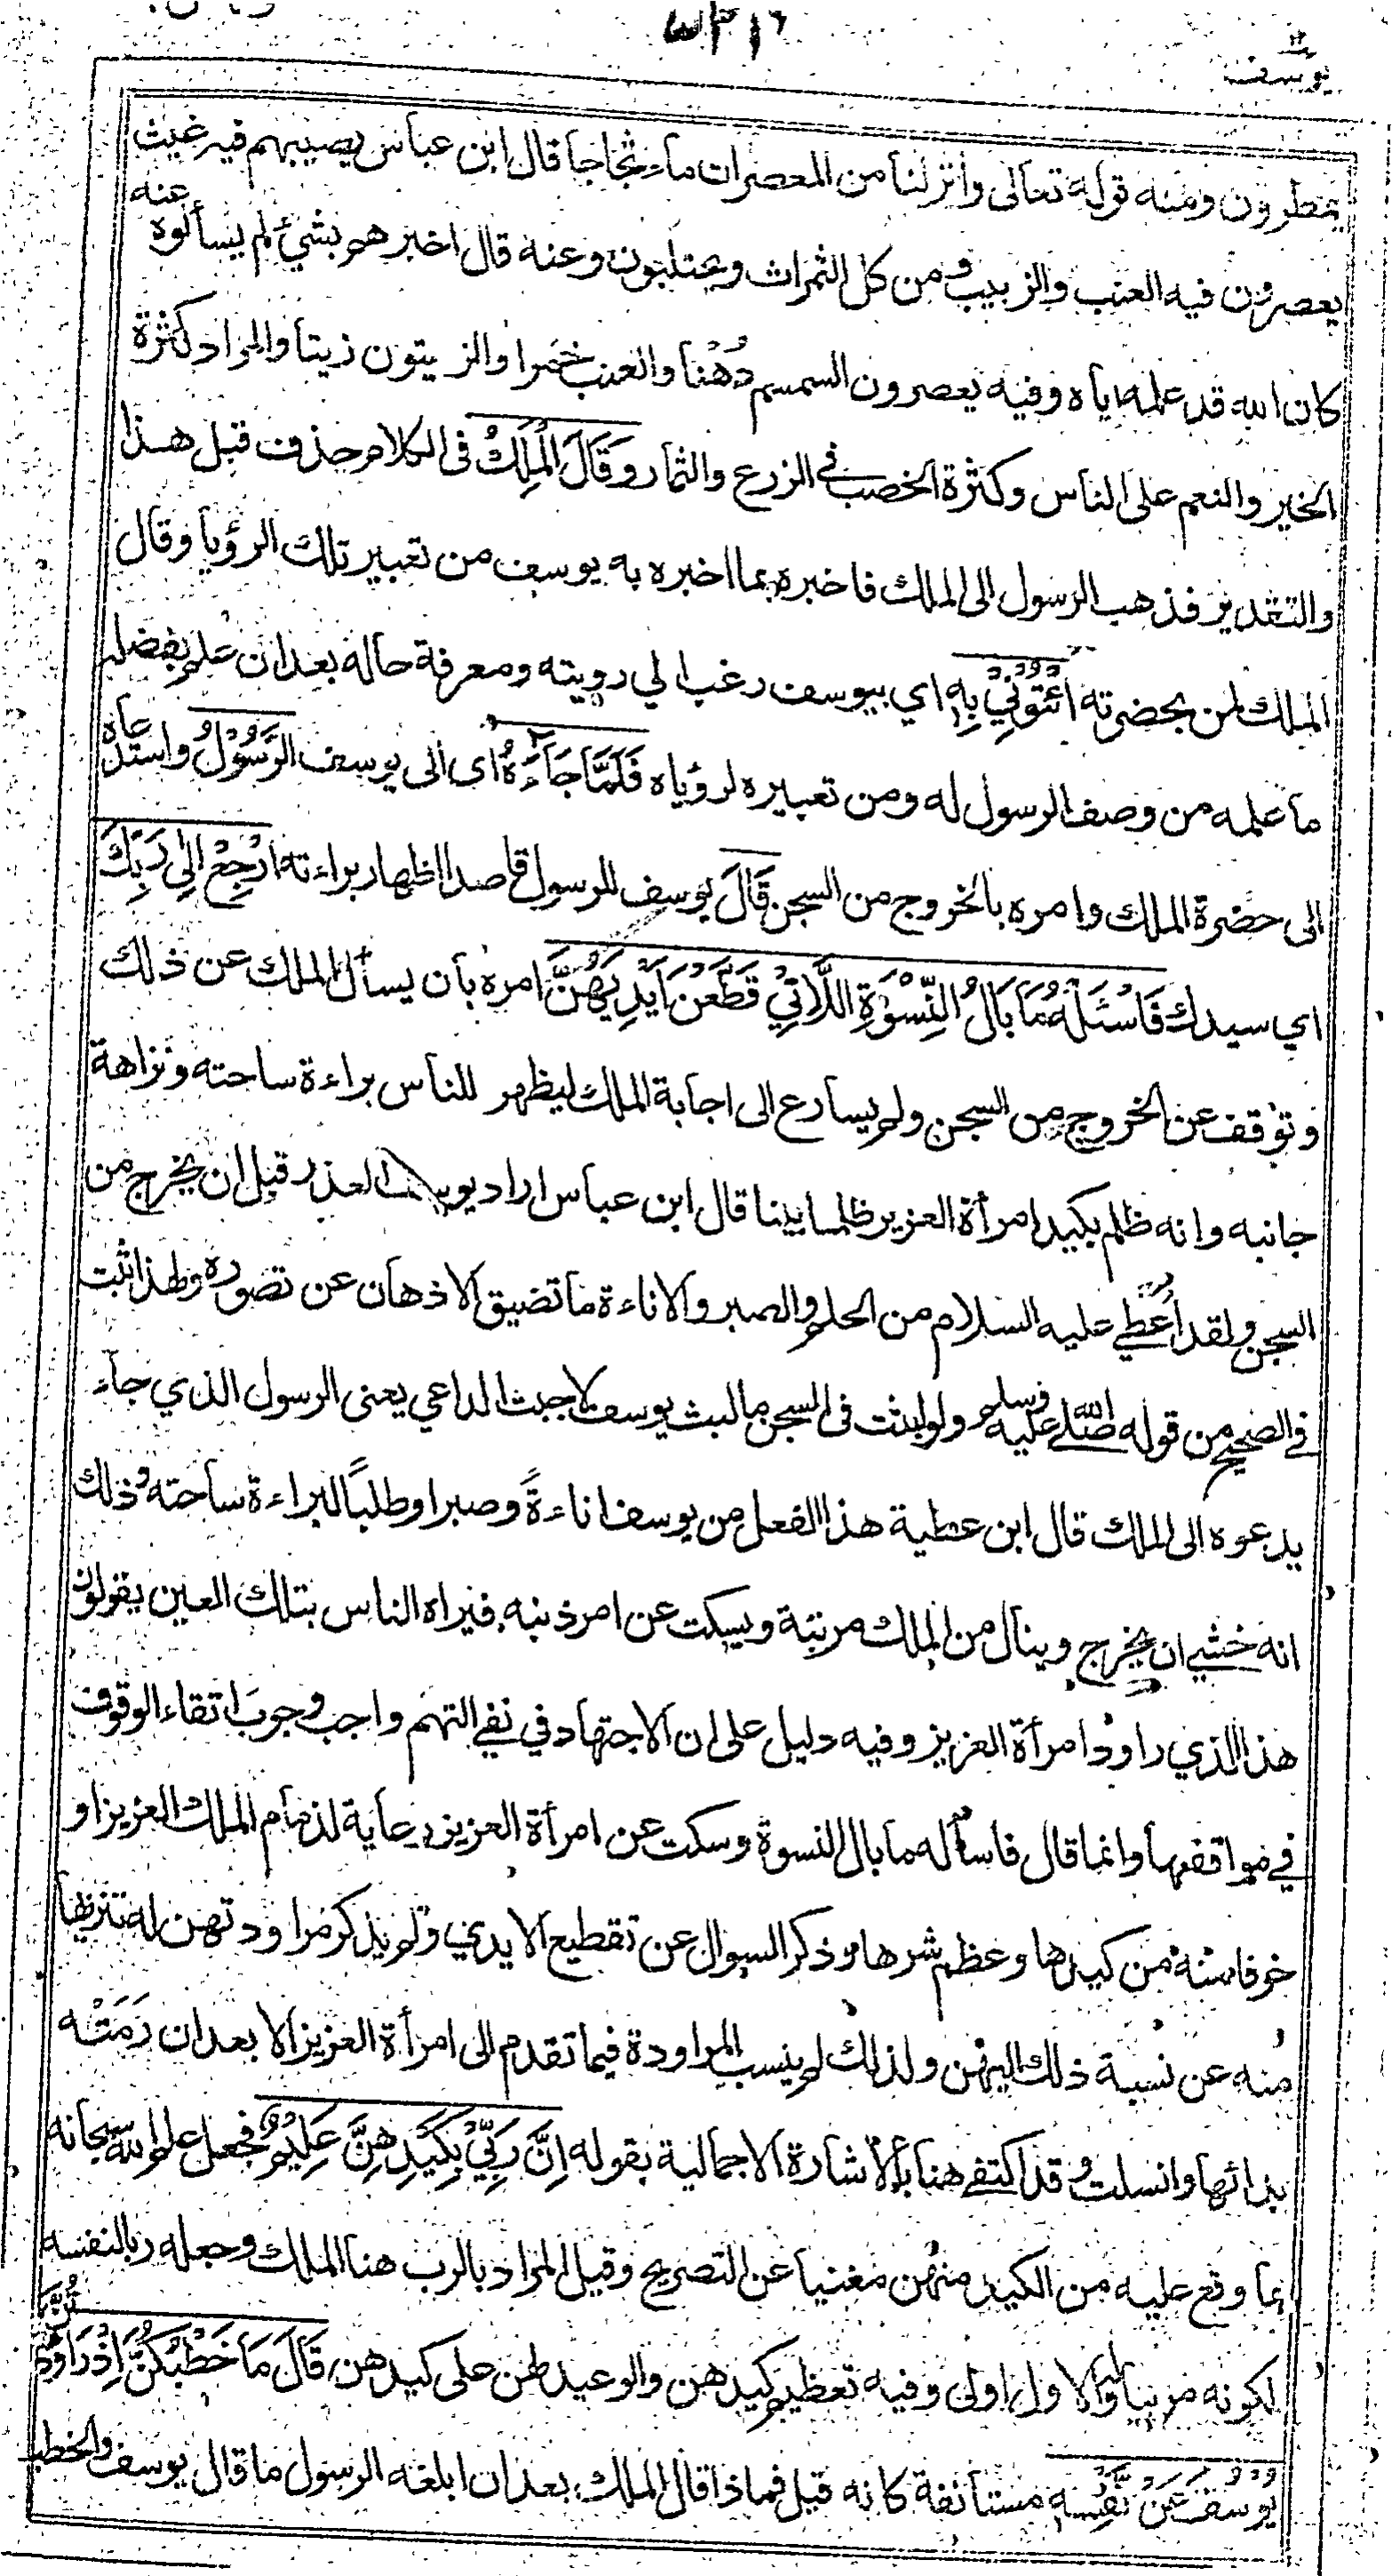 يوسف
يمطرون ومنه قوله تعالى وأنزلنا من المعصرات ماء ثجاجا قال ابن عباس يصيبهم فيه غيث
يعصرون فيه العنب والزبيب ومن كل الثمرات ويحتلبون وعنه قال اخبرهم بشئ لم يسألوه عنه
كان الله قد علمه اياه وفيه يعصرون السمسم دُهْنا والعنب خمرا والزيتون زيتا والمراد كثرة
الخير والنعم على الناس وكثرة الخصب في الزرع والثمار وَقَالَ الْمَلِكُ في الكلام حذف قبل هذا
والتقدير فذهب الرسول الى الملك فاخبره بما اخبره به يوسف من تعبير تلك الرؤيا وقال
الملك لمن بحضرته ائْتُوْنِيْ بِهٖ اي بيوسف رغب الي رويته ومعرفة حاله بعد ان علم بفضله
ما علمه من وصف الرسول له ومن تعبيره لرؤياه فَلَمَّا جَاءَهُ اى الى يوسف الرَّسُوْلُ واستدعاه
الى حضرة الملك وامره بالخروج من السجن قَالَ يوسف للرسول قاصدا اظهار براءته ارْجِعْ اِلٰى رَبِّكَ
اي سيدك فَاسْئَلْهُ مَا بَالُ النِّسْوَةِ اللَّاتِيْ قَطَّعْنَ اَيْدِيَهُنَّ امره بأن يسأل الملك عن ذلك
وتوقف عن الخروج من السجن ولم يسارع الى اجابة الملك ليظهر للناس براءة ساحته ونزاهة
جانبه وانه ظلم بكيد امرأة العزيز ظلما بينا قال ابن عباس اراد يوسف العذر قبل ان يخرج من
السجن ولقد أُعْطي عليه السلام من الحلم والصبر والاناءة ما تضيق الاذهان عن تصوره ولهذا ثبت
في الصحيح من قوله صلى الله عليه وسلم ولو لبثت فى السجن ما لبث يوسف لاجبت الداعي يعنى الرسول الذي جاء
يدعوه الى الملك قال ابن عطية هذا الفعل من يوسف اناءةً وصبرا وطلباً لبراءة ساحته وذلك
انه خشي ان يخرج وينال من الملك مرتبة ويسكت عن امر ذنبه فيراه الناس بتلك العين يقولون
هذا الذي راود امرأة العزيز وفيه دليل على ان الاجتهاد في نفي التهم واجب وجوبَ اتقاء الوقوف
في مواقفها وانما قال فاسأله ما بال النسوة وسكت عن امرأة العزيز رعاية لذمام الملك العزيز او
خوفا منه من كيدها وعظم شرها وذكر السوال عن تقطيع الايدي ولم يذكر مراودتهن له تنزيها
منه عن نسبة ذلك اليهن ولذلك لم ينسب المراودة فيما تقدم الى امرأة العزيز الا بعد ان رَمَتْه
بدائها وانسلت وقد اكتفى هنا بالاشارة الاجمالية بقوله اِنَّ رَبِّيْ بِكَيْدِهِنَّ عَلِيْمٌ فجعل علم الله سبحانه
بما وقع عليه من الكيد منهن مغنيا عن التصريح وقيل المراد بالرب هنا الملك وجعله ربا لنفسه
لكونه مربيا له والاول اولى وفيه تعظيم كيدهن والوعيد لهن على كيدهن قَالَ مَا خَطْبُكُنَّ اِذْ رَاوَدْتُّنَّ
يُوْسُفَ عَنْ نَّفْسِهٖ مستأنفة كانه قيل فماذا قال الملك بعد ان ابلغه الرسول ما قال يوسف والخطب